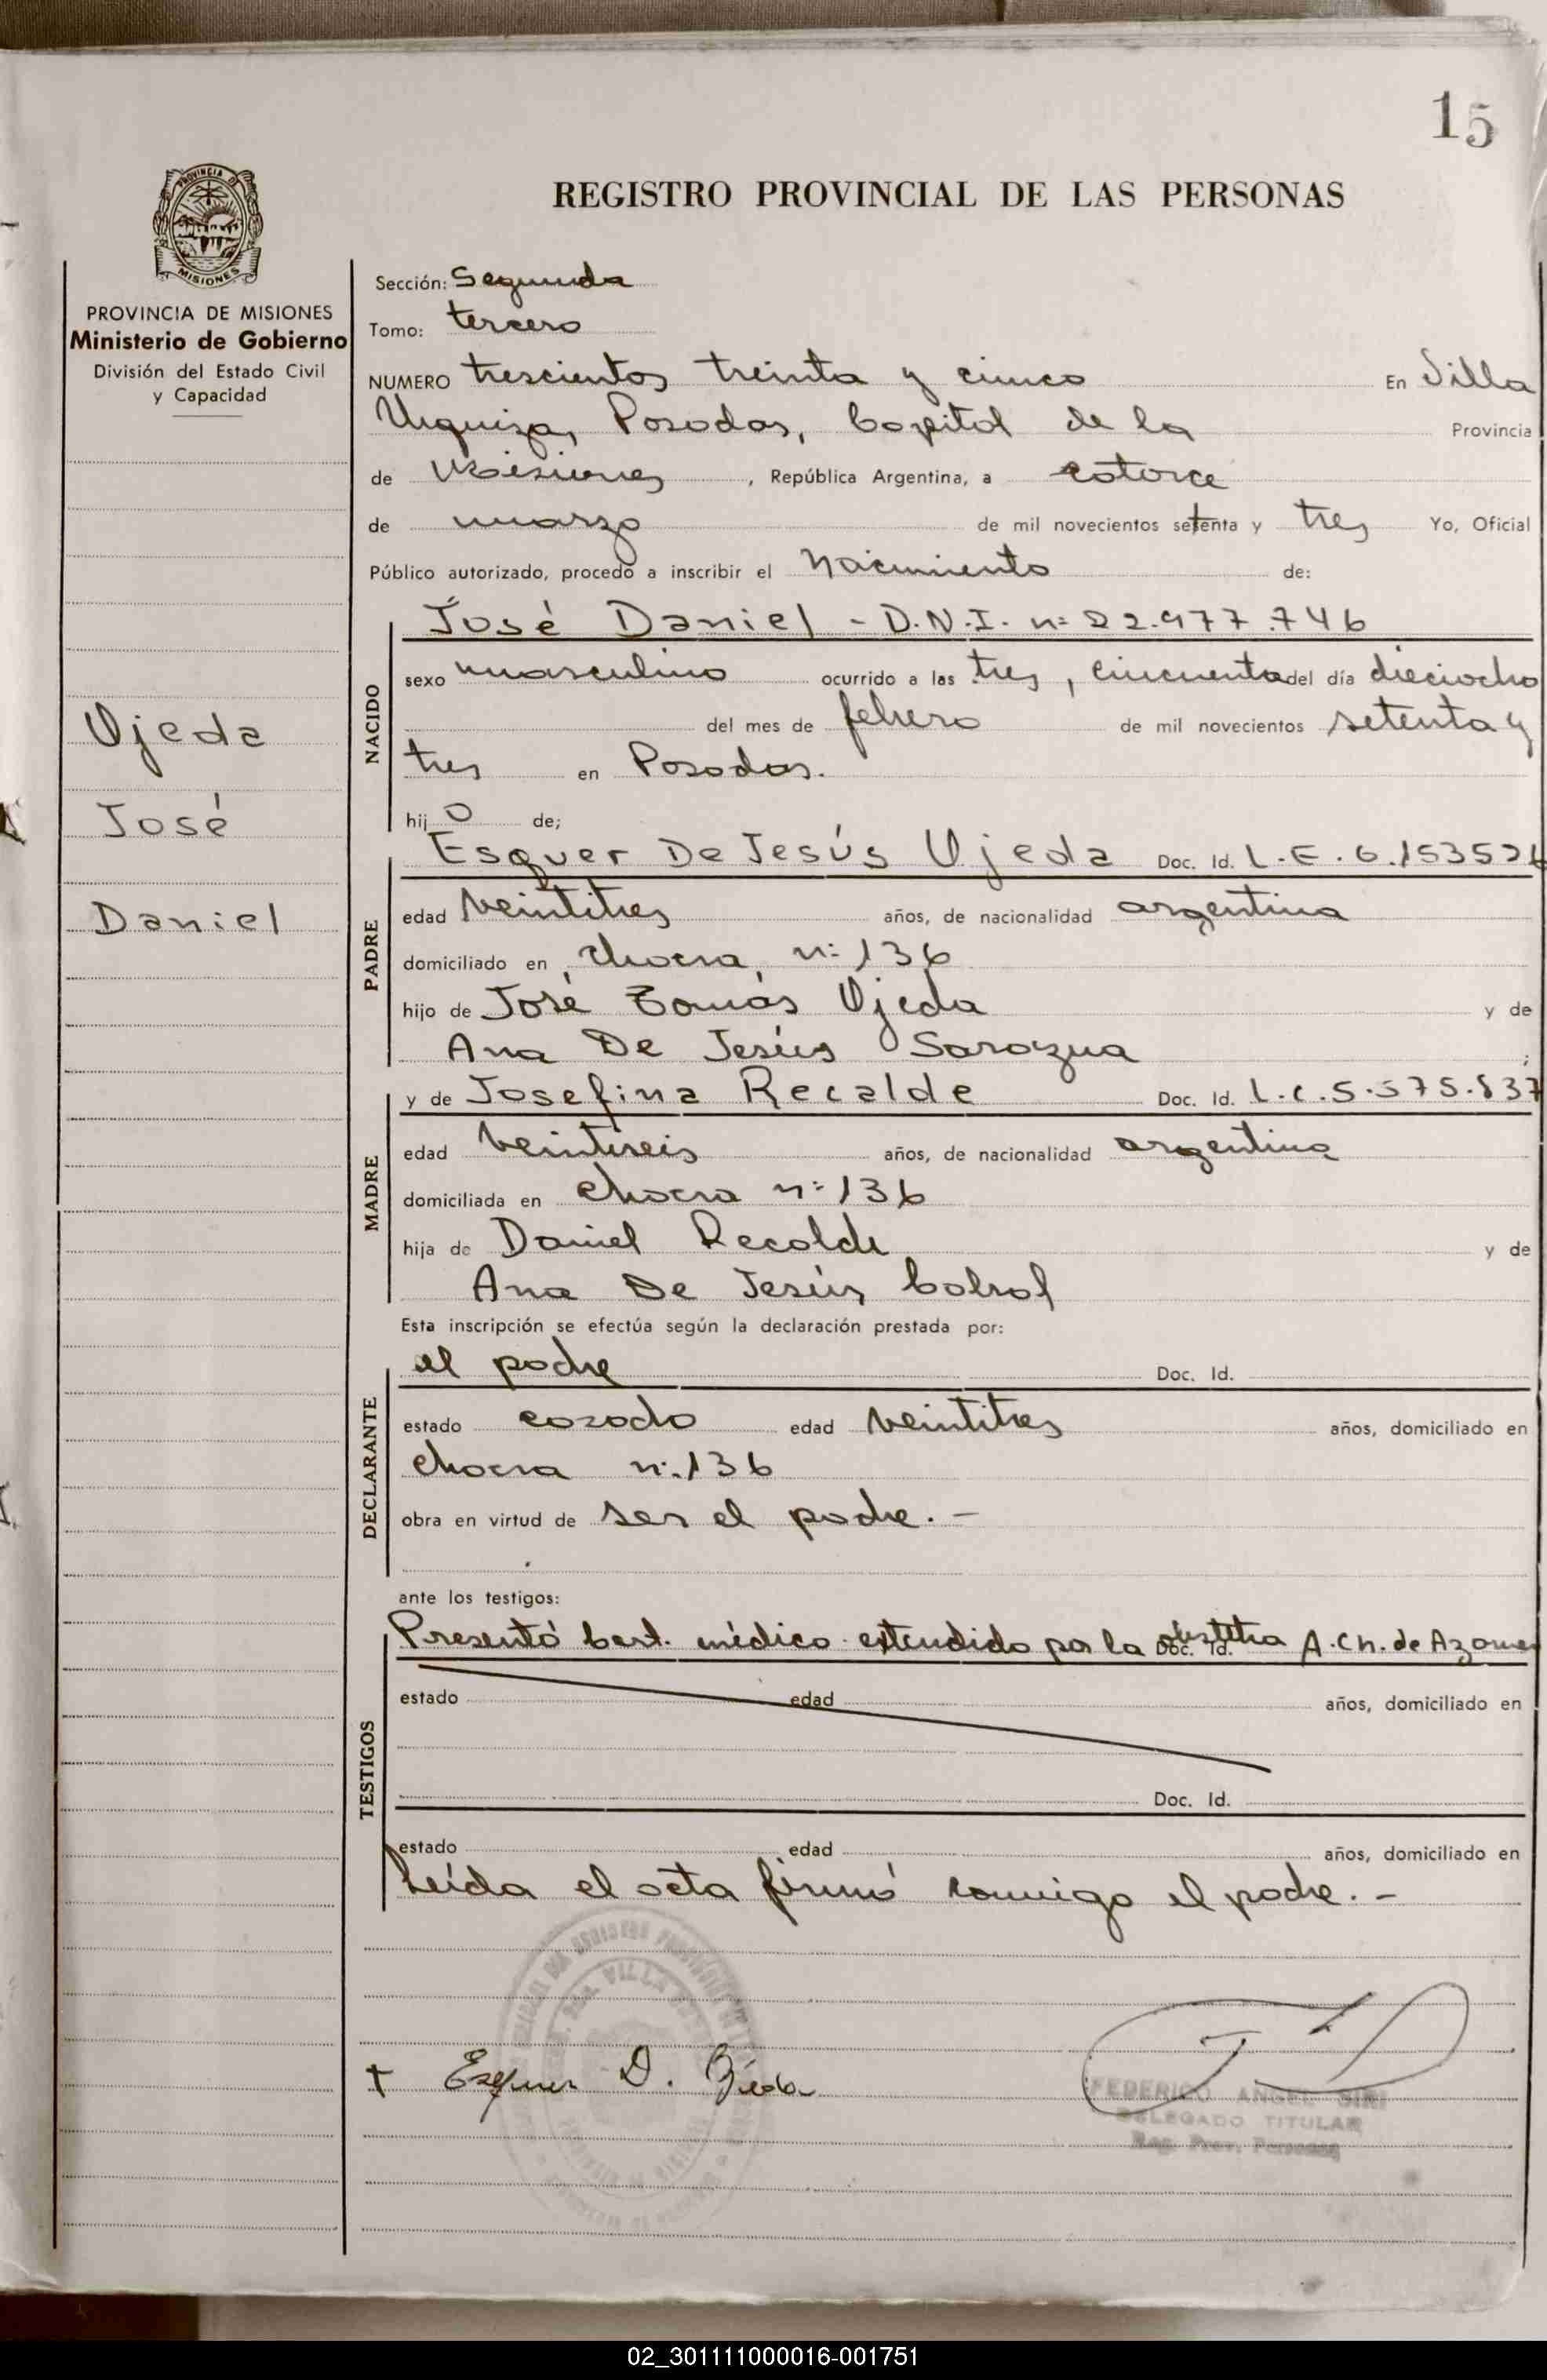 15
REGISTRO PROVINCIAL DE LAS PERSONAS
PROVINCIA DE
MISIONES
PROVINCIA DE MISIONES
Ministerio de Gobierno
División del Estado Civil
y Capacidad
Ojeda
José
Daniel
Sección: Segunda
Tomo: tercero
NUMERO trescientos treinta y cinco En Villa
Urquiza, Posadas, Capital de la Provincia
de Misiones, República Argentina, a catorce
de marzo de mil novecientos setenta y tres Yo, Oficial
Público autorizado, procedo a inscribir el Nacimiento de:
NACIDO
José Daniel - D.N.I. n= 22.977.746
sexo masculino ocurrido a las tres, cincuenta del día dieciocho
del mes de febrero de mil novecientos setenta y
tres en Posadas.
hijo de;
PADRE
Esquer De Jesús Ojeda Doc. Id. L.E.
edad veintitres años, de nacionalidad argentina
domiciliado en chacra, n= 136
hijo de José Tomás Ojeda y de
Ana De Jesús Sarazua ;
MADRE
y de Josefina Recalde Doc. Id. L.C.
edad veintiseis años, de nacionalidad argentina
domiciliada en chacra n= 136
hija de Daniel Recalde y de
Ana De Jesús Cabral
Esta inscripción se efectúa según la declaración prestada por:
DECLARANTE
el padre Doc. Id.
estado casado edad veintitres años, domiciliado en
chacra n:. 136
obra en virtud de ser el padre. -
ante los testigos:
TESTIGOS
Presentó Cert. médico extendido por la obstetra Doc. Id. A. Ch. de
estado edad años, domiciliado en
Doc. Id.
estado edad años, domiciliado en
Leída el acta firmó conmigo el padre. -
Esquer D. Ojeda
FEDERICO ANGEL SIRI
DELEGADO TITULAR
Reg. Prov. Personas
02_301111000016-001751